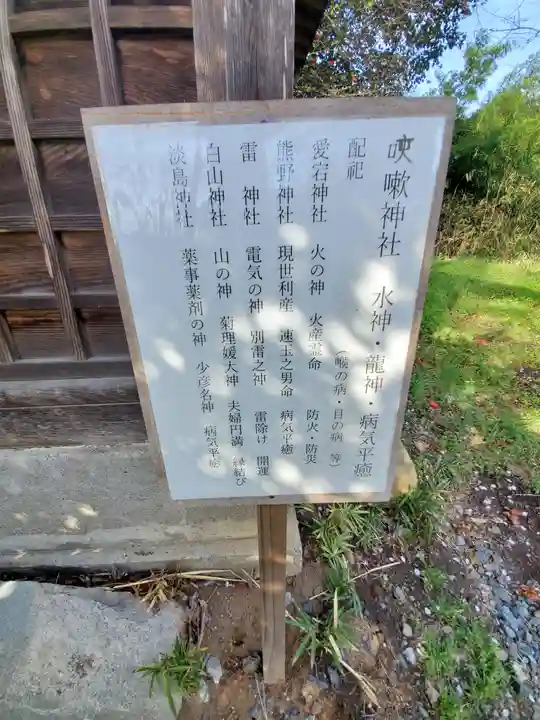 咳嗽神社 水神・龍神・病気平癒
（喉の病・目の病 等）
配祀
愛宕神社 火の神 火産霊命 防火・防災
熊野神社 現世利産 速玉之男命 病気平癒
雷 神社 電気の神 別雷之神 雷除け 開運
白山神社 山の神 菊理媛大神 夫婦円満 縁結び
淡島神社 薬事薬剤の神 少彦名神 病気平癒